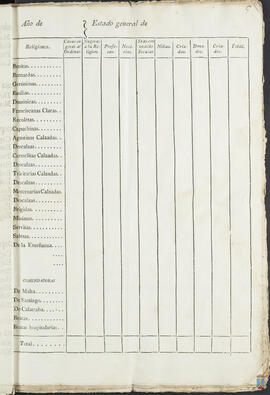 Año de
Estado general de
Religiosas.
Casas sugetas al Ordinar.
Sugetas á la Religion.
Profesas.
Novicias.
Niñas.
Criadas.
Criados.
Total.
Benitas
Bernardas
Gerónimas
Dominicas
Franciscanas Claras
Recoletas
Capuchinas
Agustinas Calzadas
Descalzas
Carmelitas Calzadas
Descalzas
Trinitarias Calzadas
Descalzas
Mercenarias Calzadas
Descalzas
Brígidas
Mínimas
Servitas
Salesas
De la Enseñanza
COMENDADORAS
De Malta
De Santiago
De Calatrava
Beatas
Beatas hospitalarias
Total